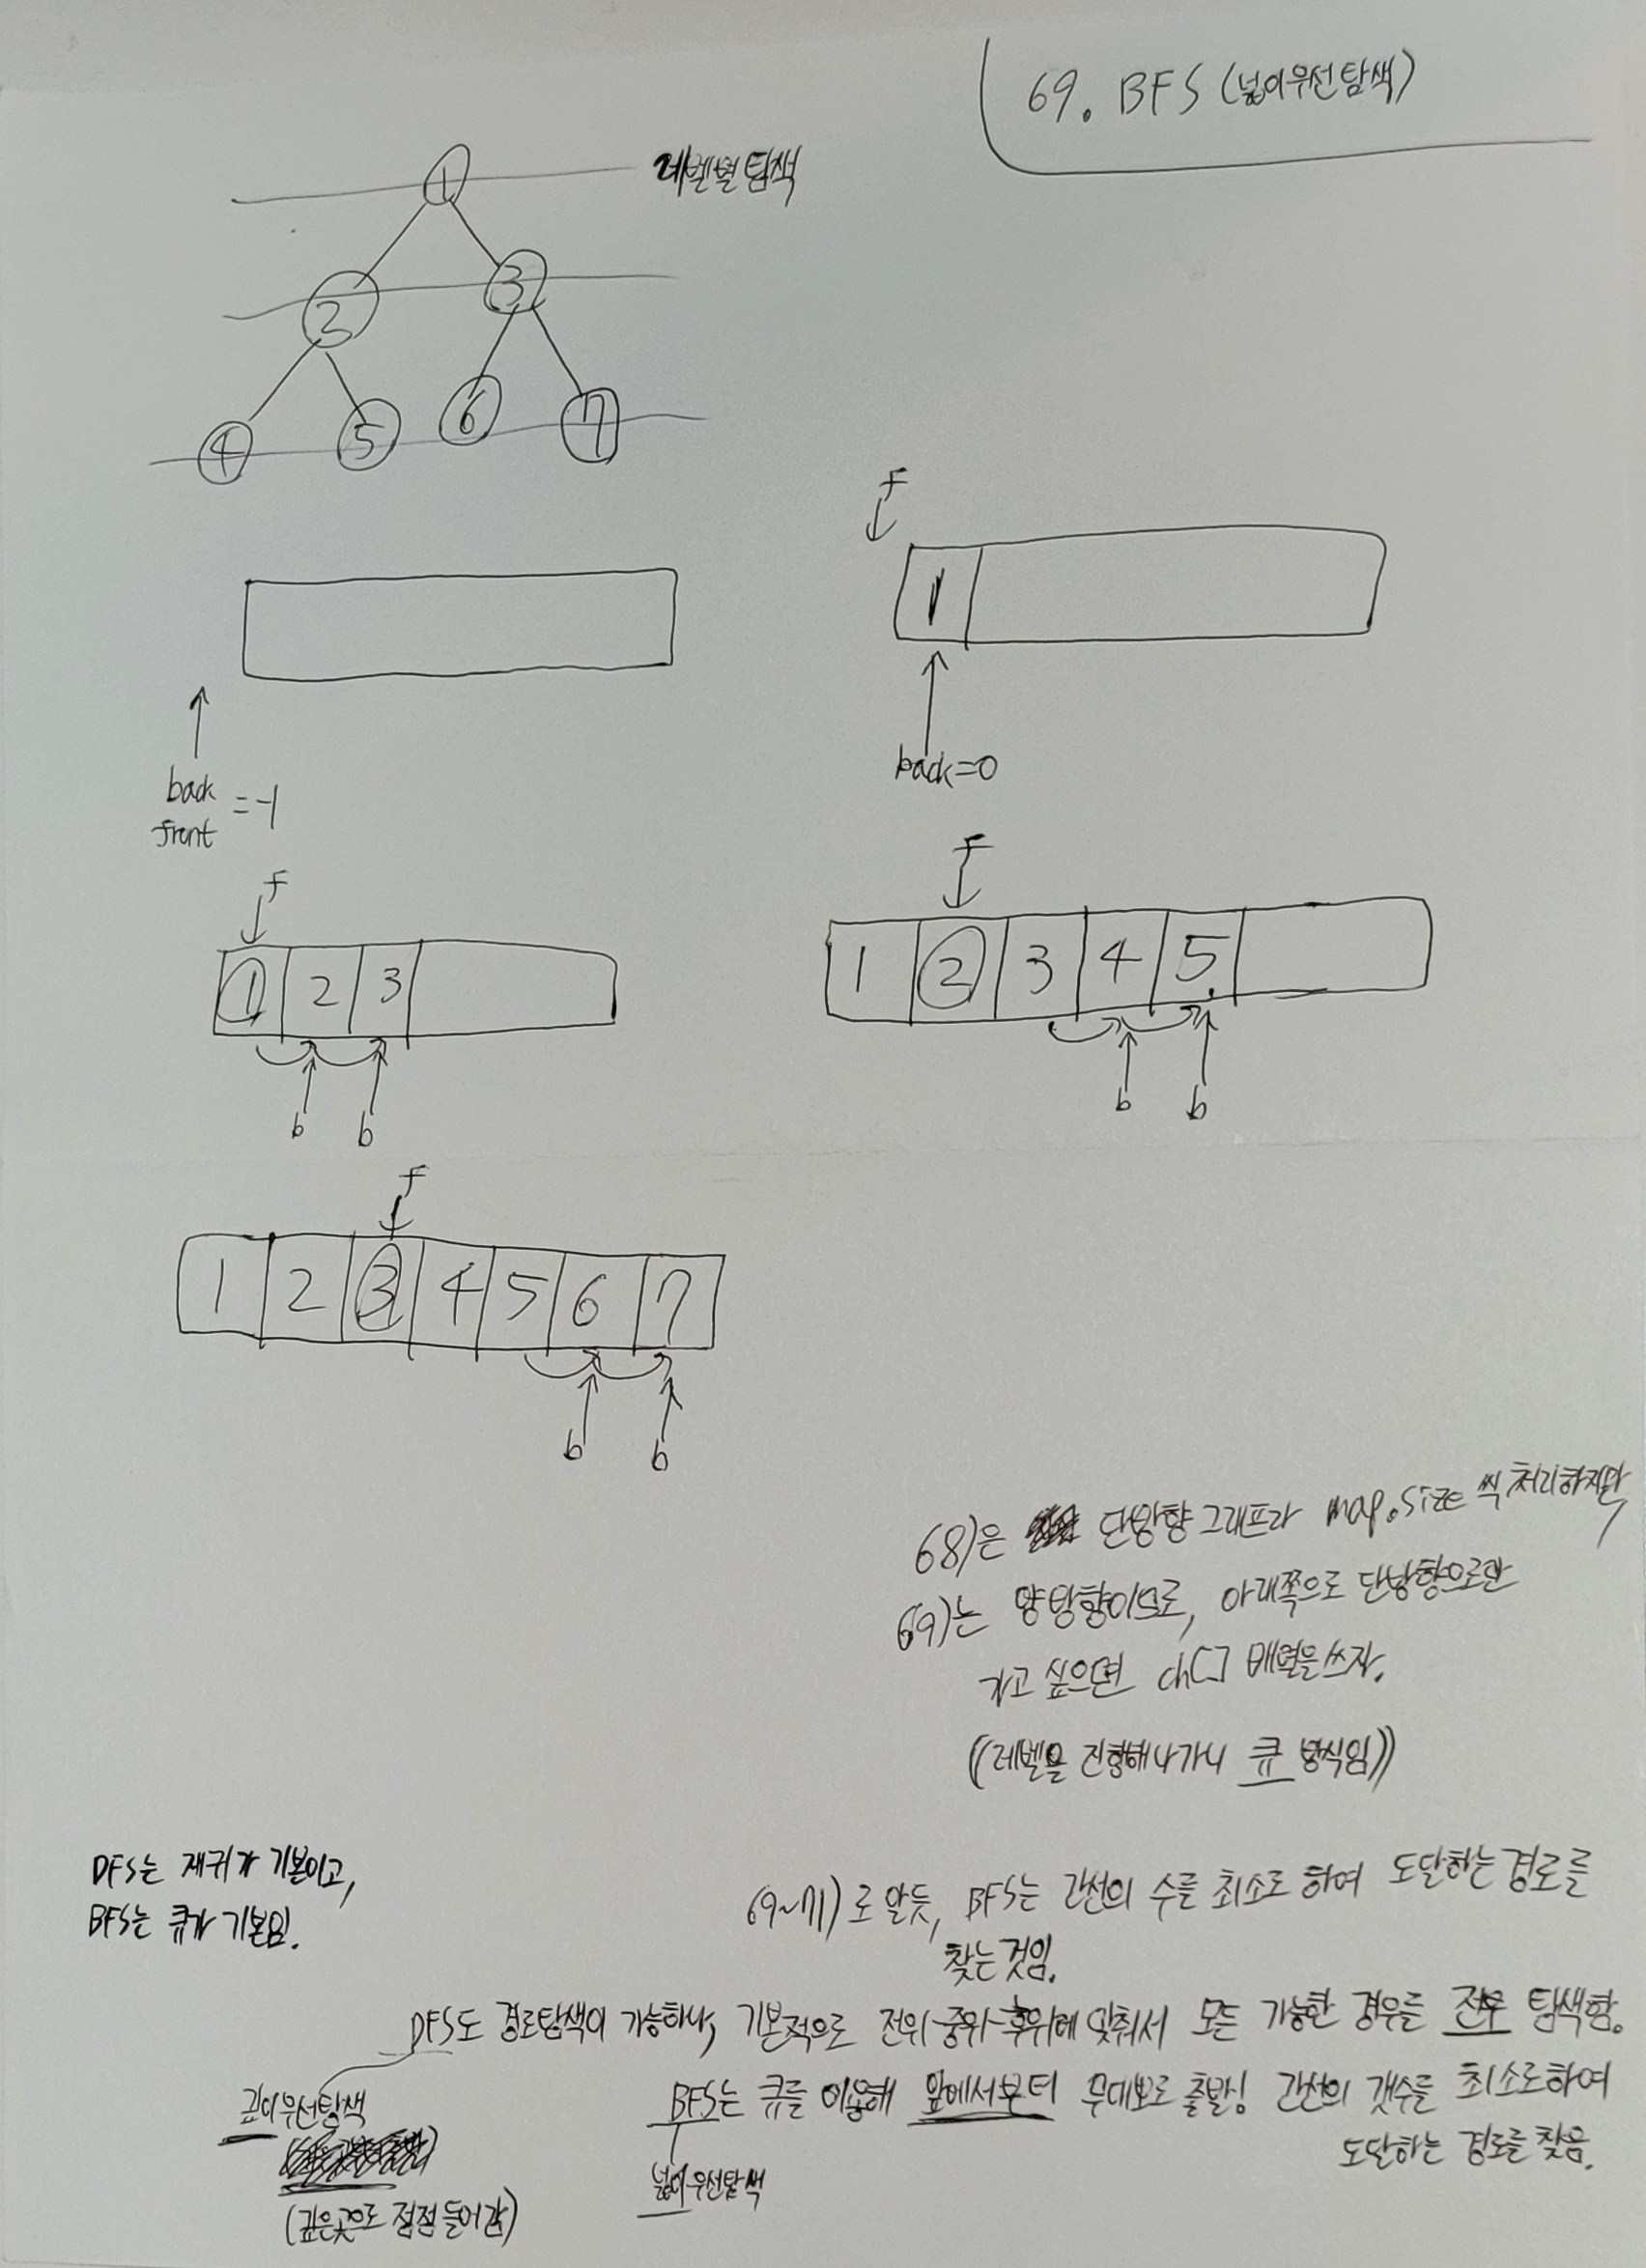 69. BFS (넓이우선탐색)
레벨별탐색
1
2 3
4 5 6 7
F
1
back
front =-1
back=0
F
1 2 3
b b
F
1 2 3 4 5
b b
F
1 2 3 4 5 6 7
b b
68)은 단방향그래프라 map.size씩 처리하지만,
69)는 양방향이므로, 아래쪽으로 단방향으로만
가고 싶으면 ch[] 배열을쓰자.
((레벨을 진행해나가니 큐 방식임))
DFS는 재귀가 기본이고,
BFS는 큐가 기본임.
69~71)로 알듯, BFS는 간선의 수를 최소로 하여 도달하는 경로를
찾는것임.
DFS도 경로탐색이 가능하나, 기본적으로 전위-중위-후위에 맞춰서 모든 가능한 경우를 전부 탐색함.
깊이우선탐색
(깊은곳으로 점점 들어감)
BFS는 큐를 이용해 앞에서부터 무대뽀로 출발싱 간선의 갯수를 최소로하여
도달하는 경로를 찾음.
넓이우선탐색